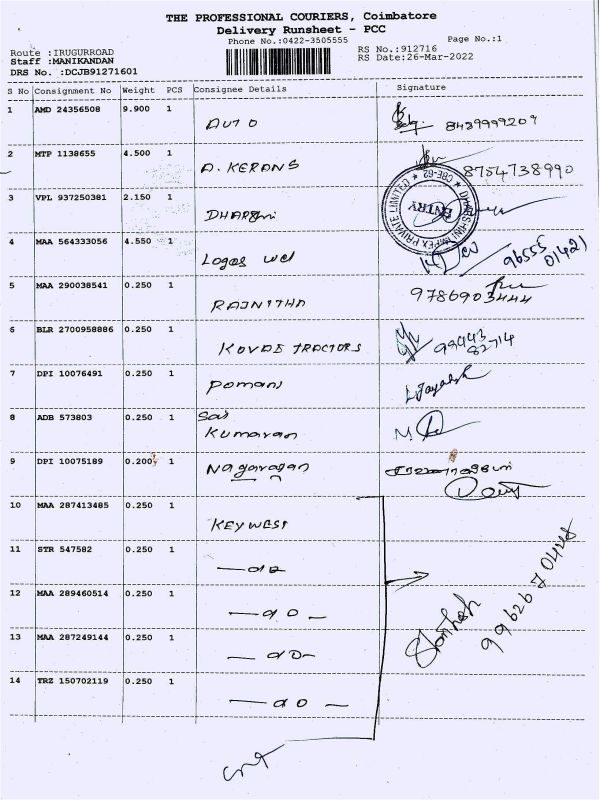 THE PROFESSIONAL COURIERS, Coimbatore
Delivery Runsheet - PCC
Phone No.:0422-3505555
Page No.:1
Route :IRUGURROAD
RS No.:912716
Staff :MANIKANDAN
RS Date:26-Mar-2022
DRS No. :DCJB91271601
S No Consignment No Weight PCS Consignee Details Signature
1 AMD 24356508 9.900 1 AUTO 8439999209
2 MTP 1138655 4.500 1 A. KERANS 8754738990
3 VPL 937250381 2.150 1 DHARSHNI
DHARSHINI IMPEX PRIVATE LIMITED ★ CBE-62 ★
ENTRY
4 MAA 564333056 4.550 1 Logas wel 96555 01421
5 MAA 290038541 0.250 1 RAJNITHA 9786903444
6 BLR 2700958886 0.250 1 KOVAE TRACTORS 99443 82714
7 DPI 10076491 0.250 1 Pomani
8 ADB 573803 0.250 1 Sai Kumaran
9 DPI 10075189 0.200 1 Nagarajan
10 MAA 287413485 0.250 1 KEYWEST
11 STR 547582 0.250 1 — do
12 MAA 289460514 0.250 1 — do —
13 MAA 287249144 0.250 1 — do —
14 TRZ 150702119 0.250 1 — do —
Santhosh